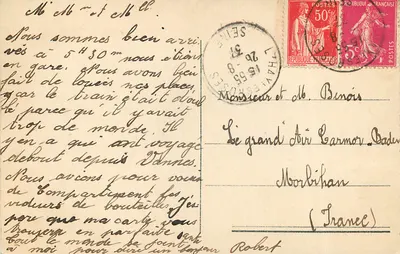 Mr Mme et Mlle
Nous sommes bien arri
vés à 5h 30m nous étions
en gare. Nous avons bien
fait de louer nos places,
car le train était dou
ble parce qu'il y avait
trop de monde. Il
y en a qui ont voyagé
debout depuis Vannes.
Nous avions pour voisins
de compartiment les
videurs de bouteille. J'es
père que ma carte vous
trouvera en parfaite santé
Tout le monde se joint
à moi pour dire un bonjour
Robert
50c
POSTES
L'HAY-LES-ROSES
15 55
26-8
37
SEINE
Monsieur et M. Benois
Le grand' Air Larmor-Baden
Morbihan
(France)